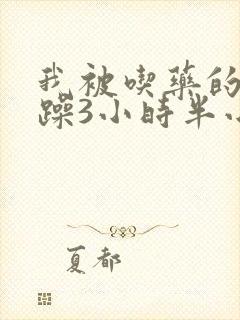 我被喫藥的
躁3小時半
夏都